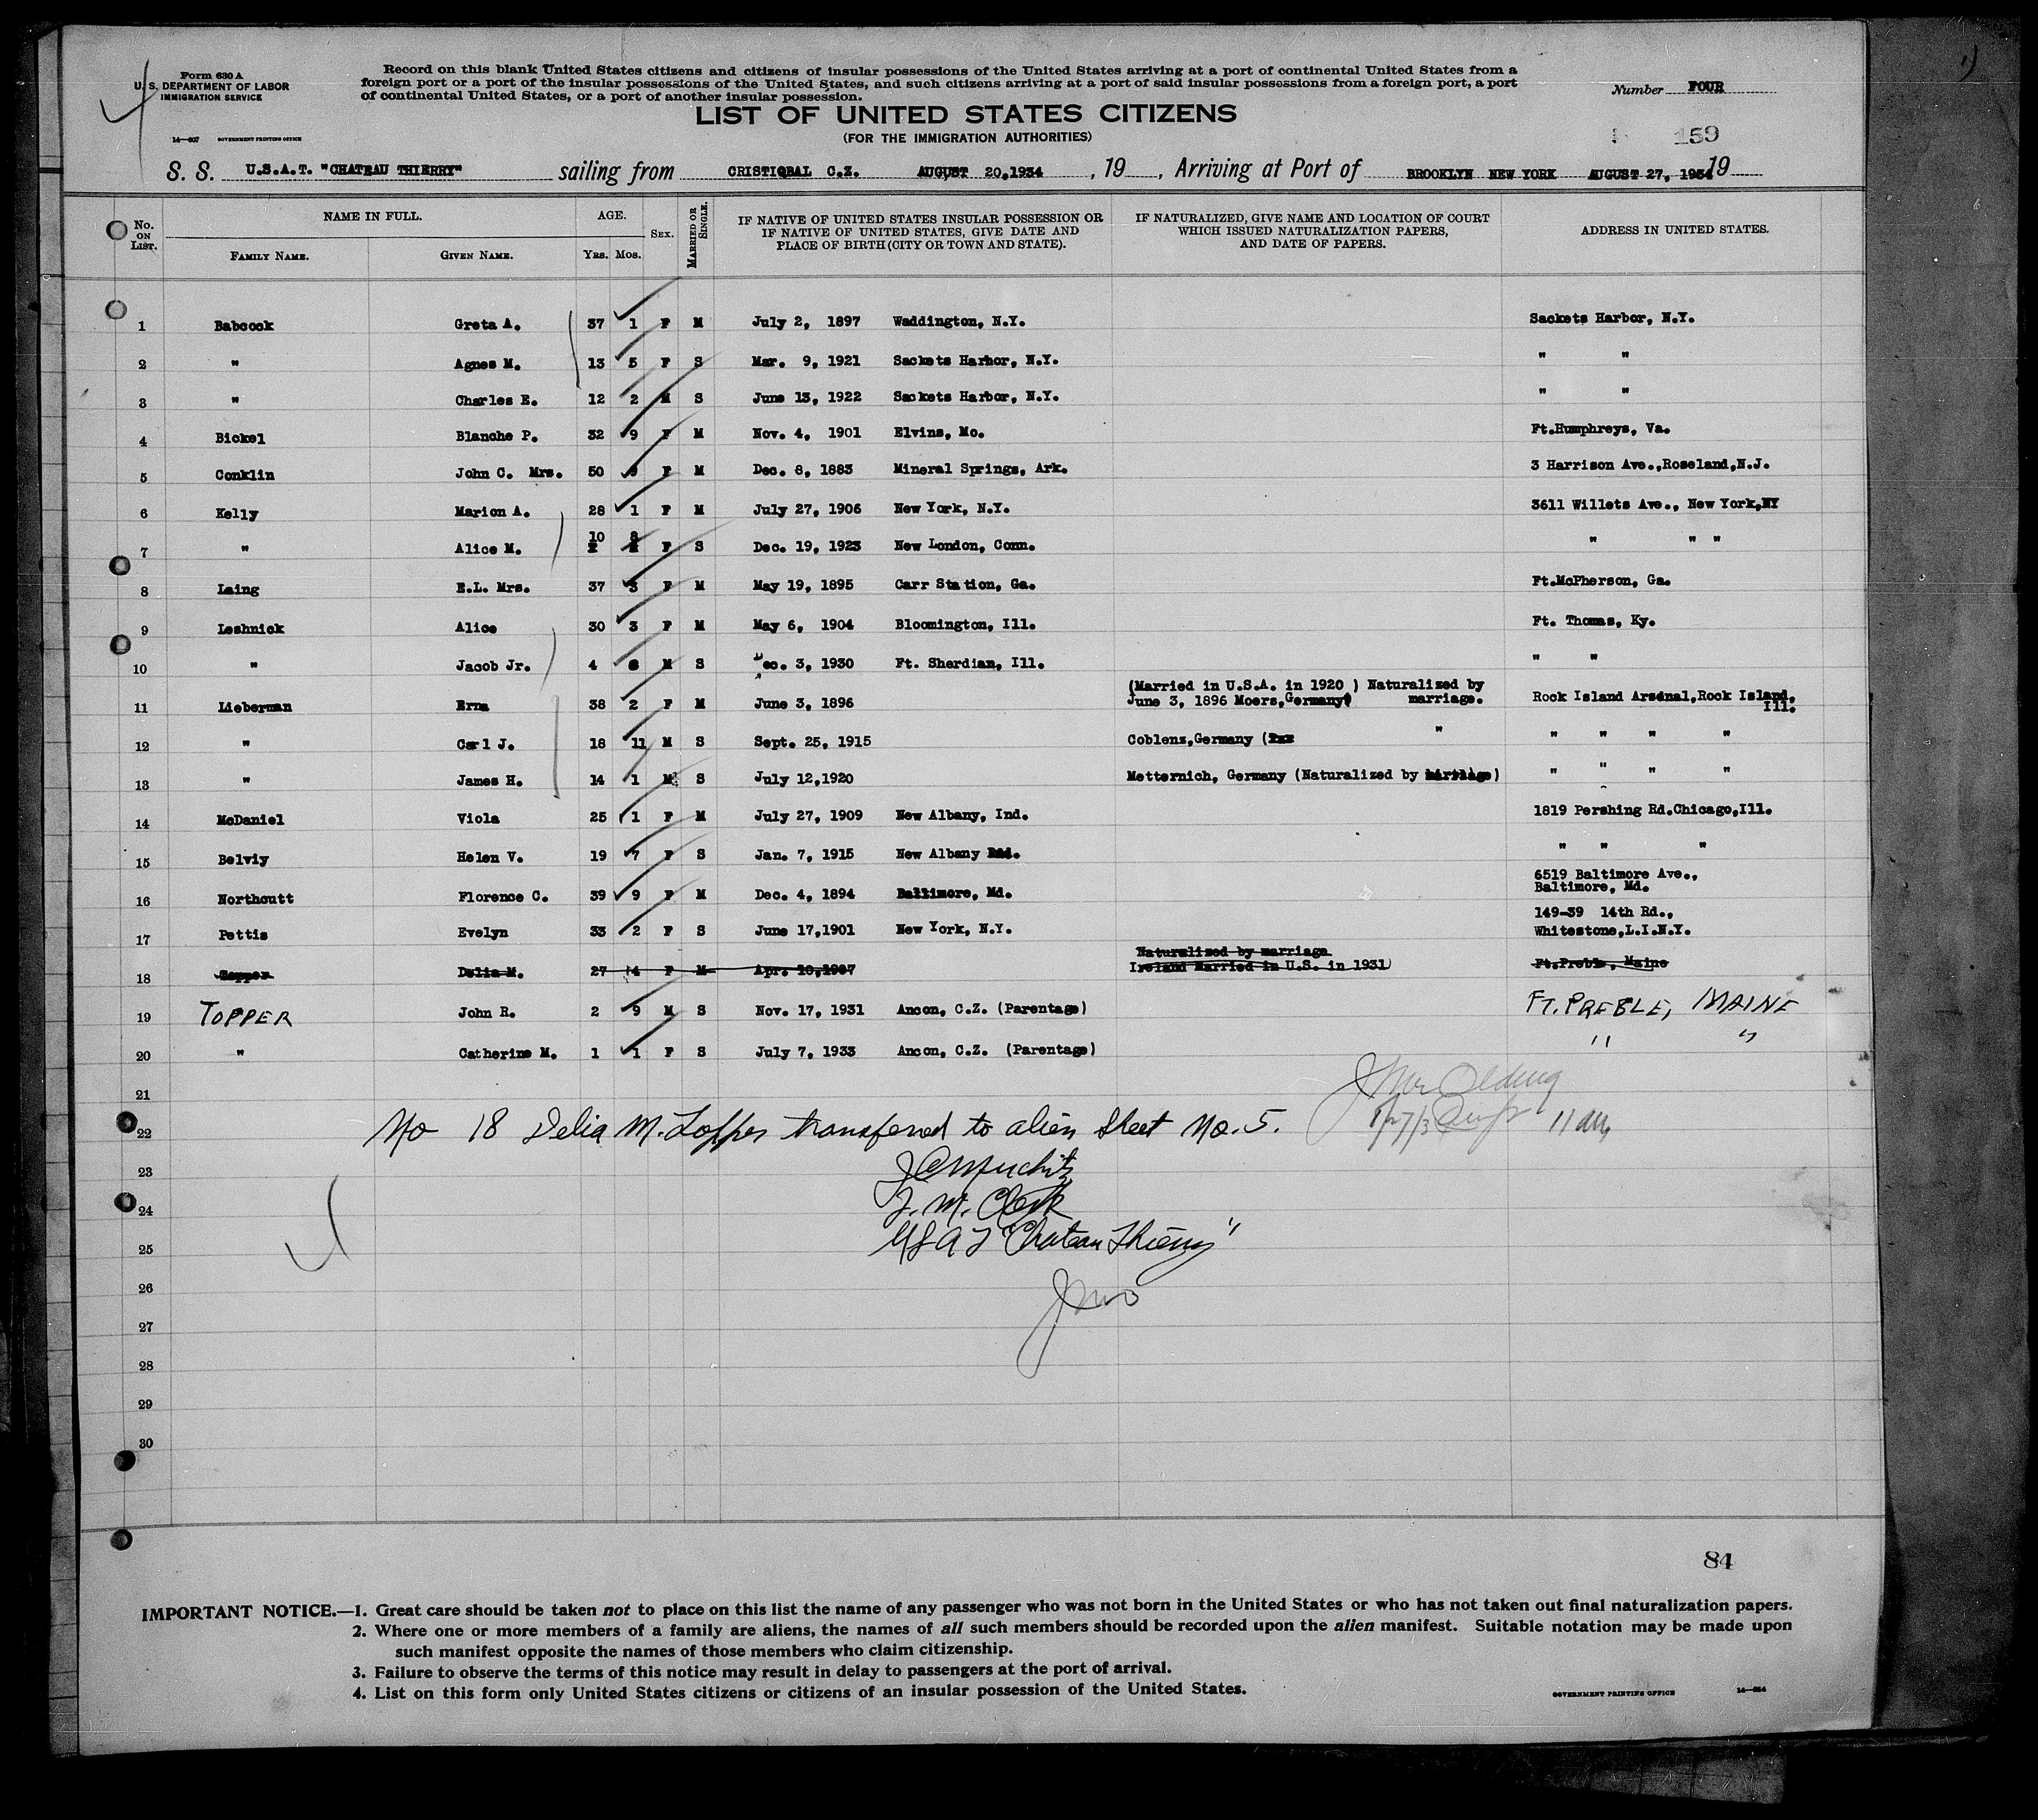 Form 630 A
U. S. DEPARTMENT OF LABOR
IMMIGRATION SERVICE
14—807 GOVERNMENT PRINTING OFFICE
Record on this blank United States citizens and citizens of insular possessions of the United States arriving at a port of continental United States from a
foreign port or a port of the insular possessions of the United States, and such citizens arriving at a port of said insular possessions from a foreign port, a port
of continental United States, or a port of another insular possession.
Number FOUR
LIST OF UNITED STATES CITIZENS
(FOR THE IMMIGRATION AUTHORITIES)
159
S. S. U.S.A.T. "CHATEAU THIERRY" sailing from CRISTIQBAL C.Z. AUGUST 20,1934 , 19 , Arriving at Port of BROOKLYN NEW YORK AUGUST 27, 1934 19
No. ON LIST. NAME IN FULL. AGE. SEX. MARRIED OR SINGLE. IF NATIVE OF UNITED STATES INSULAR POSSESSION OR IF NATIVE OF UNITED STATES, GIVE DATE AND PLACE OF BIRTH (CITY OR TOWN AND STATE). IF NATURALIZED, GIVE NAME AND LOCATION OF COURT WHICH ISSUED NATURALIZATION PAPERS, AND DATE OF PAPERS. ADDRESS IN UNITED STATES.
FAMILY NAME. GIVEN NAME. YRS. MOS.
1 Babcock Greta A. 37 1 F M July 2, 1897 Waddington, N.Y. Sackets Harbor, N.Y.
2 " Agnes M. 13 5 F S Mar. 9, 1921 Sackets Harhor, N.Y. " "
3 " Charles E. 12 2 M S June 13, 1922 Sackets Harbor, N.Y. " "
4 Bickel Blanche P. 32 9 F M Nov. 4, 1901 Elvins, Mo. Ft.Humphreys, Va.
5 Conklin John C. Mrs. 50 F M Dec. 8, 1883 Mineral Springs, Ark. 3 Harrison Ave.,Roseland,N.J.
6 Kelly Marion A. 28 1 F M July 27, 1906 New York, N.Y. 3611 Willets Ave., New York,NY
7 " Alice M. 10 8 F S Dec. 19, 1923 New London, Conn. " " "
8 Laing E.L. Mrs. 37 3 F M May 19, 1895 Carr Station, Ga. Ft.McPherson, Ga.
9 Leshnick Alice 30 3 F M May 6, 1904 Bloomington, Ill. Ft. Thomas, Ky.
10 " Jacob Jr. 4 M S Dec. 3, 1930 Ft. Sherdian, Ill. " "
11 Lieberman Erna 38 2 F M June 3, 1896 (Married in U.S.A. in 1920 ) Naturalized by
June 3, 1896 Moers,Germany) marriage. Rock Island Arsenal,Rock Island, Ill.
12 " Carl J. 18 11 M S Sept. 25, 1915 Coblenz,Germany ( " " " " "
13 " James H. 14 1 M S July 12,1920 Metternich, Germany (Naturalized by ) " " " "
14 McDaniel Viola 25 1 F M July 27, 1909 New Albany, Ind. 1819 Pershing Rd.Chicago,Ill.
15 Belviy Helen V. 19 7 F S Jan. 7, 1915 New Albany " " "
16 Northcutt Florence C. 39 9 F M Dec. 4, 1894 Baltimore, Md. 6519 Baltimore Ave.,
Baltimore, Md.
17 Pettis Evelyn 33 2 F S June 17,1901 New York, N.Y. 149-39 14th Rd.,
Whitestone,L.I.N.Y.
18 Topper Delia M. 27 4 F M Apr. 10,1907 Naturalized by marriage
Ireland Married in U.S. in 1931) Ft.Preble, Maine
19 TOPPER John R. 2 9 M S Nov. 17, 1931 Ancon, C.Z. (Parentage) FT. PREBLE, MAINE
20 " Catherine M. 1 1 F S July 7, 1933 Ancon, C.Z. (Parentage) " "
21
22 No 18 Delia M. Topper transferred to alien sheet No. 5. 11 AM
23
24 T. M. Clerk
25 USAT "Chateau Thierry"
26
27
28
29
30
84
IMPORTANT NOTICE.—1. Great care should be taken not to place on this list the name of any passenger who was not born in the United States or who has not taken out final naturalization papers.
2. Where one or more members of a family are aliens, the names of all such members should be recorded upon the alien manifest. Suitable notation may be made upon
such manifest opposite the names of those members who claim citizenship.
3. Failure to observe the terms of this notice may result in delay to passengers at the port of arrival.
4. List on this form only United States citizens or citizens of an insular possession of the United States.
GOVERNMENT PRINTING OFFICE